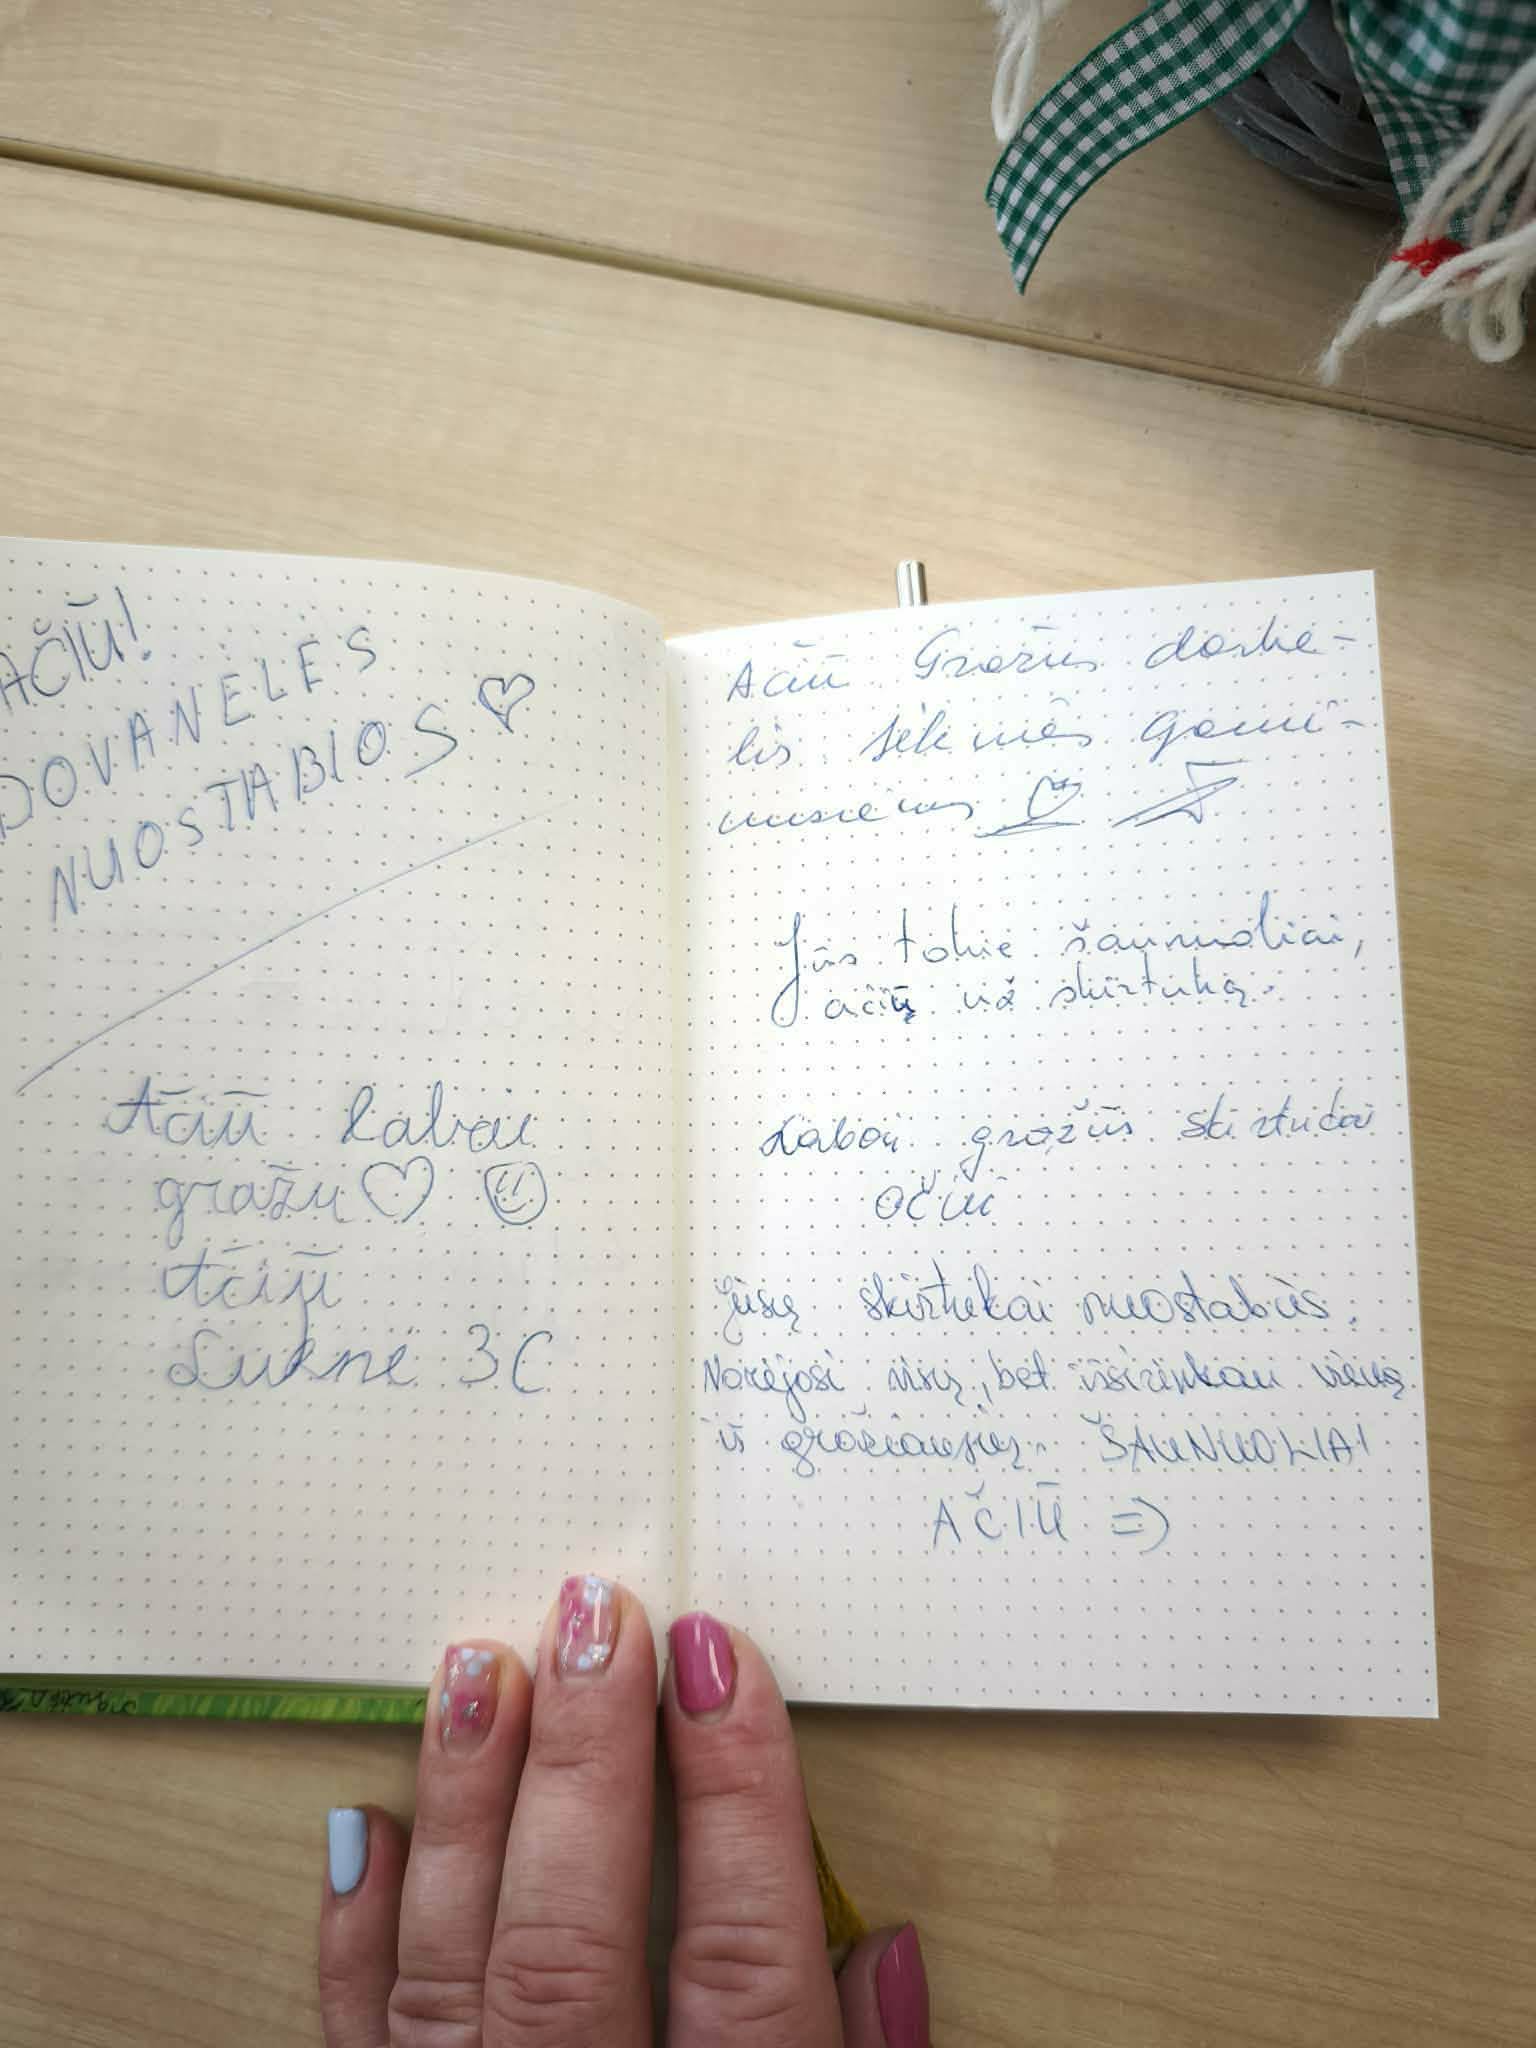 AČIŪ!
DOVANELĖS
NUOSTABIOS
Ačiū labai
gražu
Ačiū
Luknė 3C
Ačiū Gražūs darbe-
lis sėkmės gami-
Jūs tokie šaunuoliai,
ačiū už skirtuką.
Labai gražūs skirtukai
Ačiū
Jūsų skirtukai nuostabūs.
Norėjosi visų, bet išsirinkau vieną
iš gražiausių. ŠAUNUOLIAI
AČIŪ =)